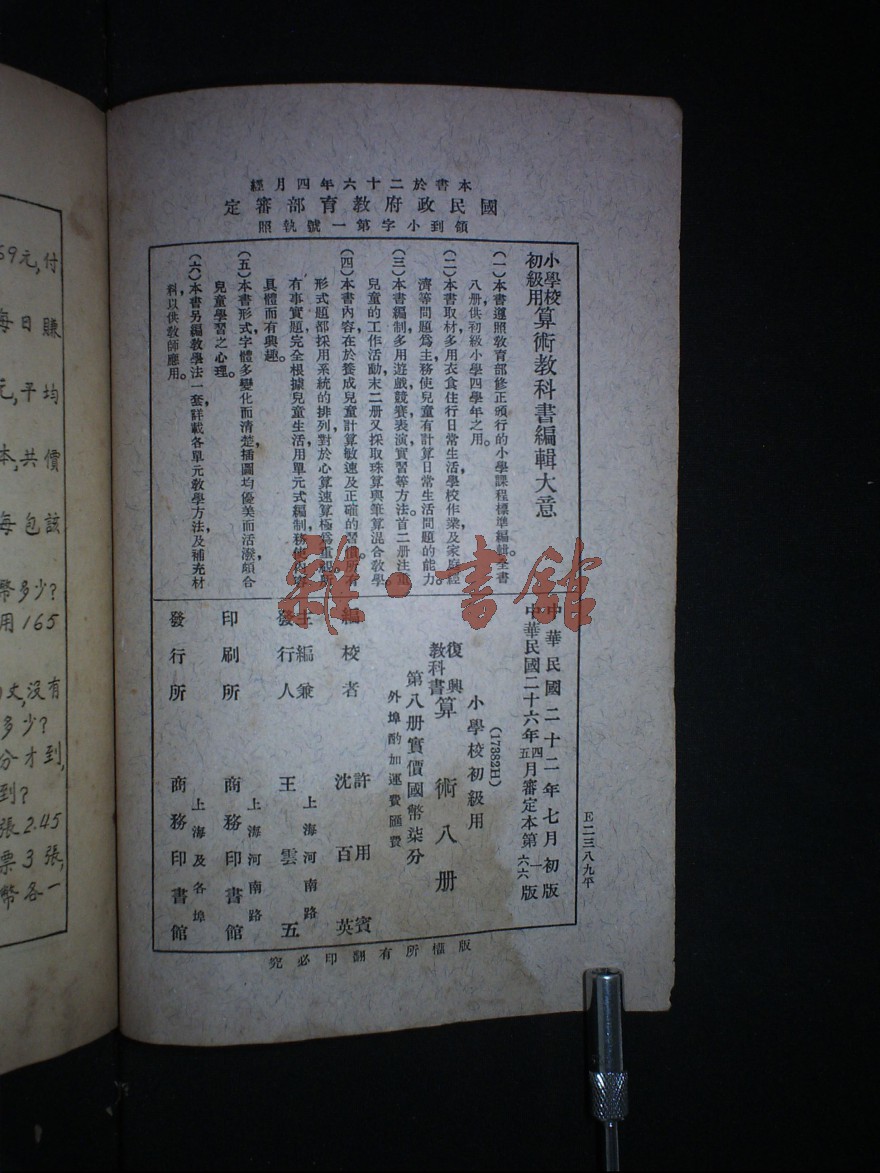 本書於二十六年四月經
國民政府教育部審定
領到小字第一號執照
小學校
初級用
算術教科書編輯大意
(一)本書遵照教育部修正頒行的小學課程標準編輯,全書
八册,供初級小學四學年之用。
(二)本書取材多用衣食住行日常生活,學校作業及家庭經
濟等問題爲主,務使兒童有計算日常生活問題的能力。
(三)本書編制多用遊戲,競賽,表演,實習等方法。首二册注重
兒童的工作活動,末二册又採取珠算與筆算混合教學。
(四)本書內容在於養成兒童計算敏速及正確的習慣。所有
形式題部採用系統的排列,對於心算速算極爲重視,所
有事實題完全根據兒童生活,用單元式編制,務使內容
具體而有興趣。
(五)本書形式,字體多變化而清楚,插圖均優美而活潑,頗合
兒童學習之心理。
(六)本書另編教學法一套,詳載各單元教學方法及補充材
料,以供教師應用。
中華民國二十二年七月初版
中華民國二十六年四五月審定本第一六六版
(17382H)
小學校初級用
復興
教科書
算術八册
第八册實價國幣柒分
外埠酌加運費匯費
編校者
許用賓
沈百英
主編兼
發行人
上海河南路
王雲五
印刷所
上海河南路
商務印書館
發行所
上海及各埠
商務印書館
版權所有翻印必究
E二三八九平
雜·書館
59元,付
每日賺
元,平均
本,共價
每包該
幣多少?
用165
丈,沒有
多少?
分才到,
到?
張2.45
票3張,
幣各一